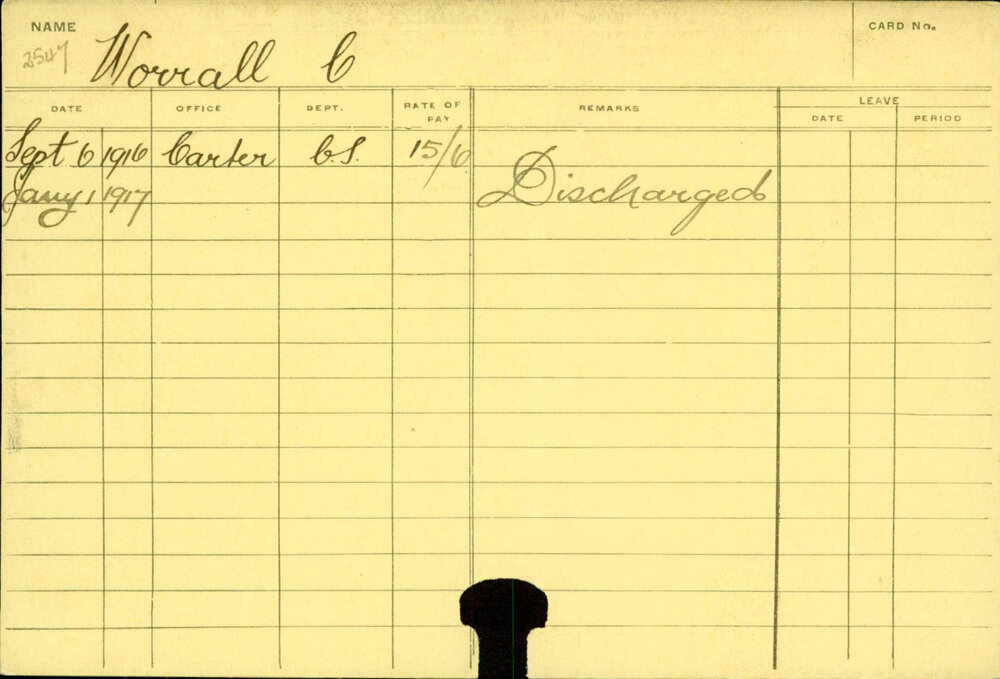 NAME
CARD No.
2547
Worrall C
DATE OFFICE DEPT. RATE OF PAY REMARKS LEAVE
DATE PERIOD
Sept 6 1916 Carter C.S. 15/6
Jany 1 1917 Discharged